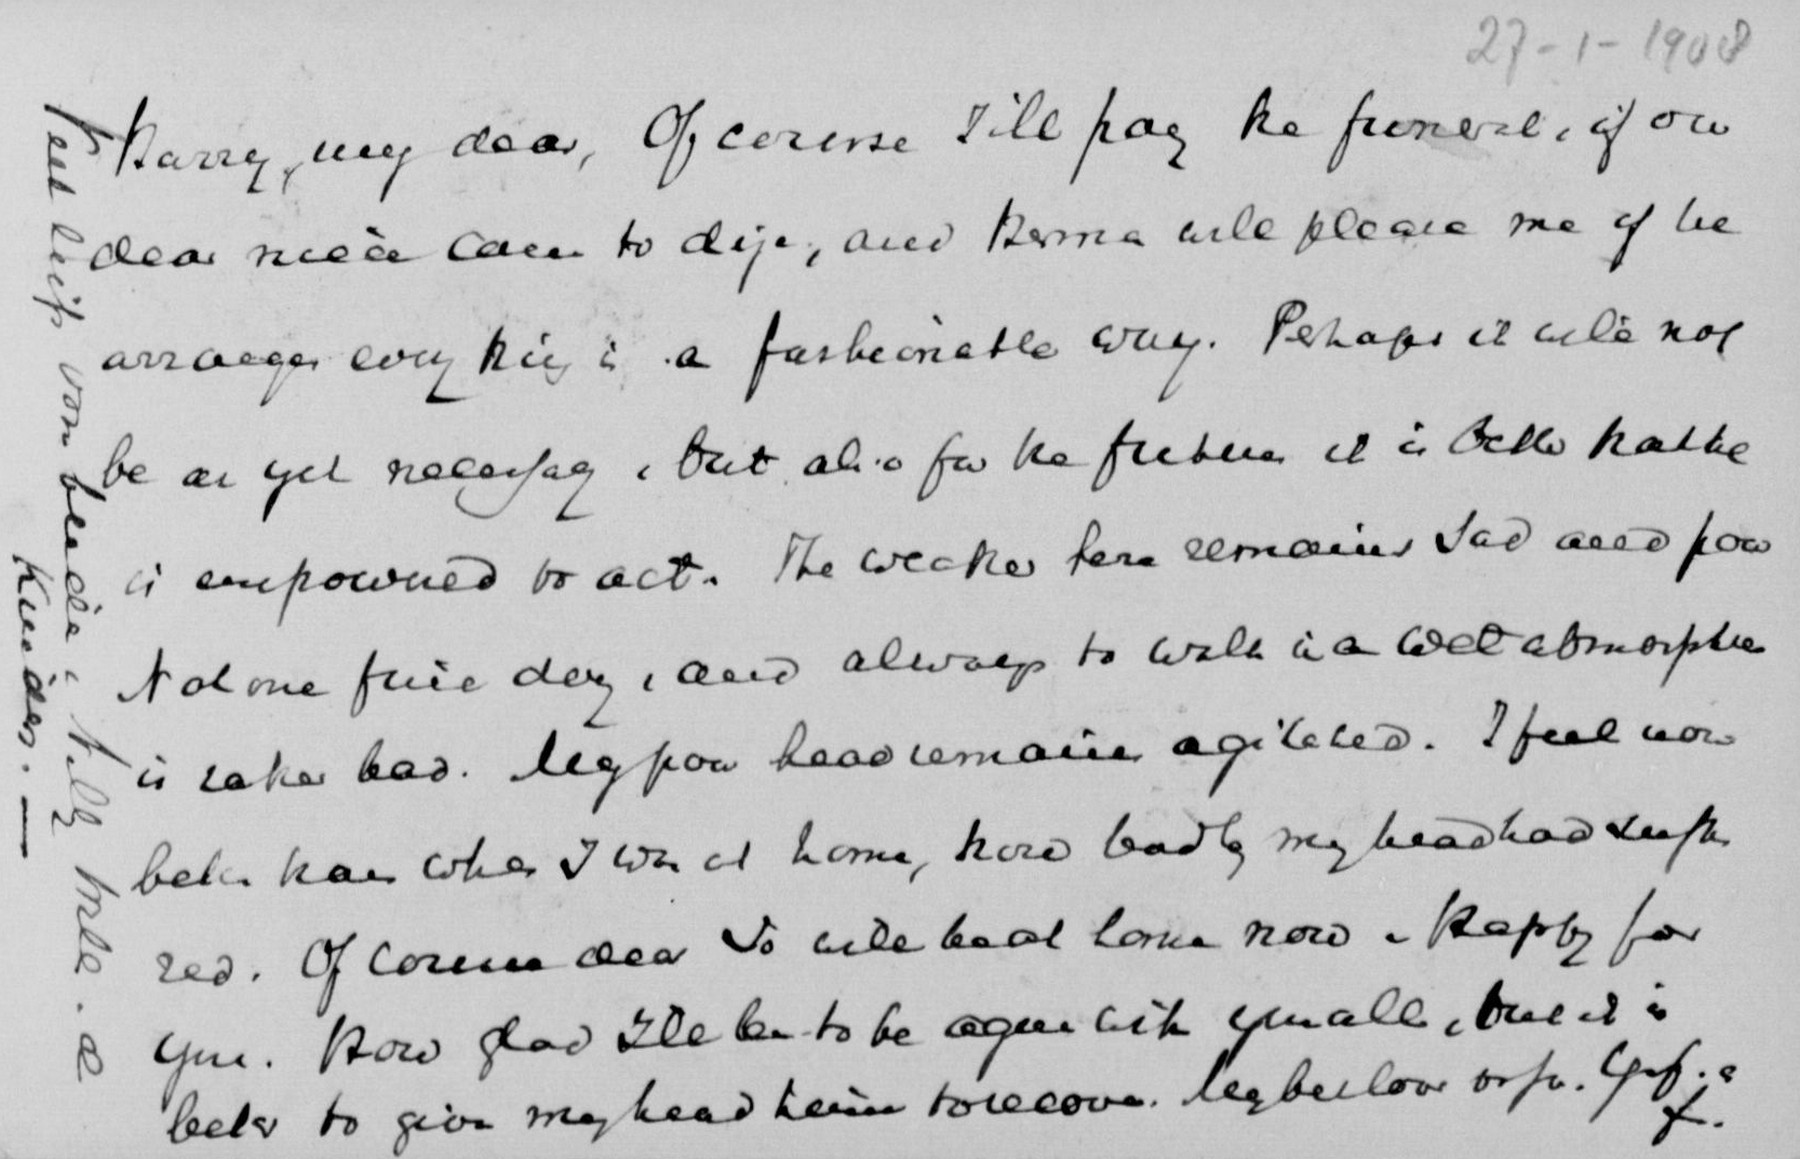 27-1-1908
Harry, my dear, Of course I'll pay the funeral, if our
dear niece came to dije, and Herma will please me if he
arranges everything in a fashionable way. Perhaps it will not
be as yet necessary, but also for the future it is better that he
is empowered to act. The weather here remains sad and poor
Not one fine day, and always to walk in a wet atmosphere
is rather bad. My poor head remains agitated. I feel now
better than when I was at home, how badly my head had suffe
red. Of course dear Jo will be at home now. Happy for
you. How glad I'll be to be again with you all, but it is
better to give my head time to recover. My best love
Veel liefs van
Kuiders.—